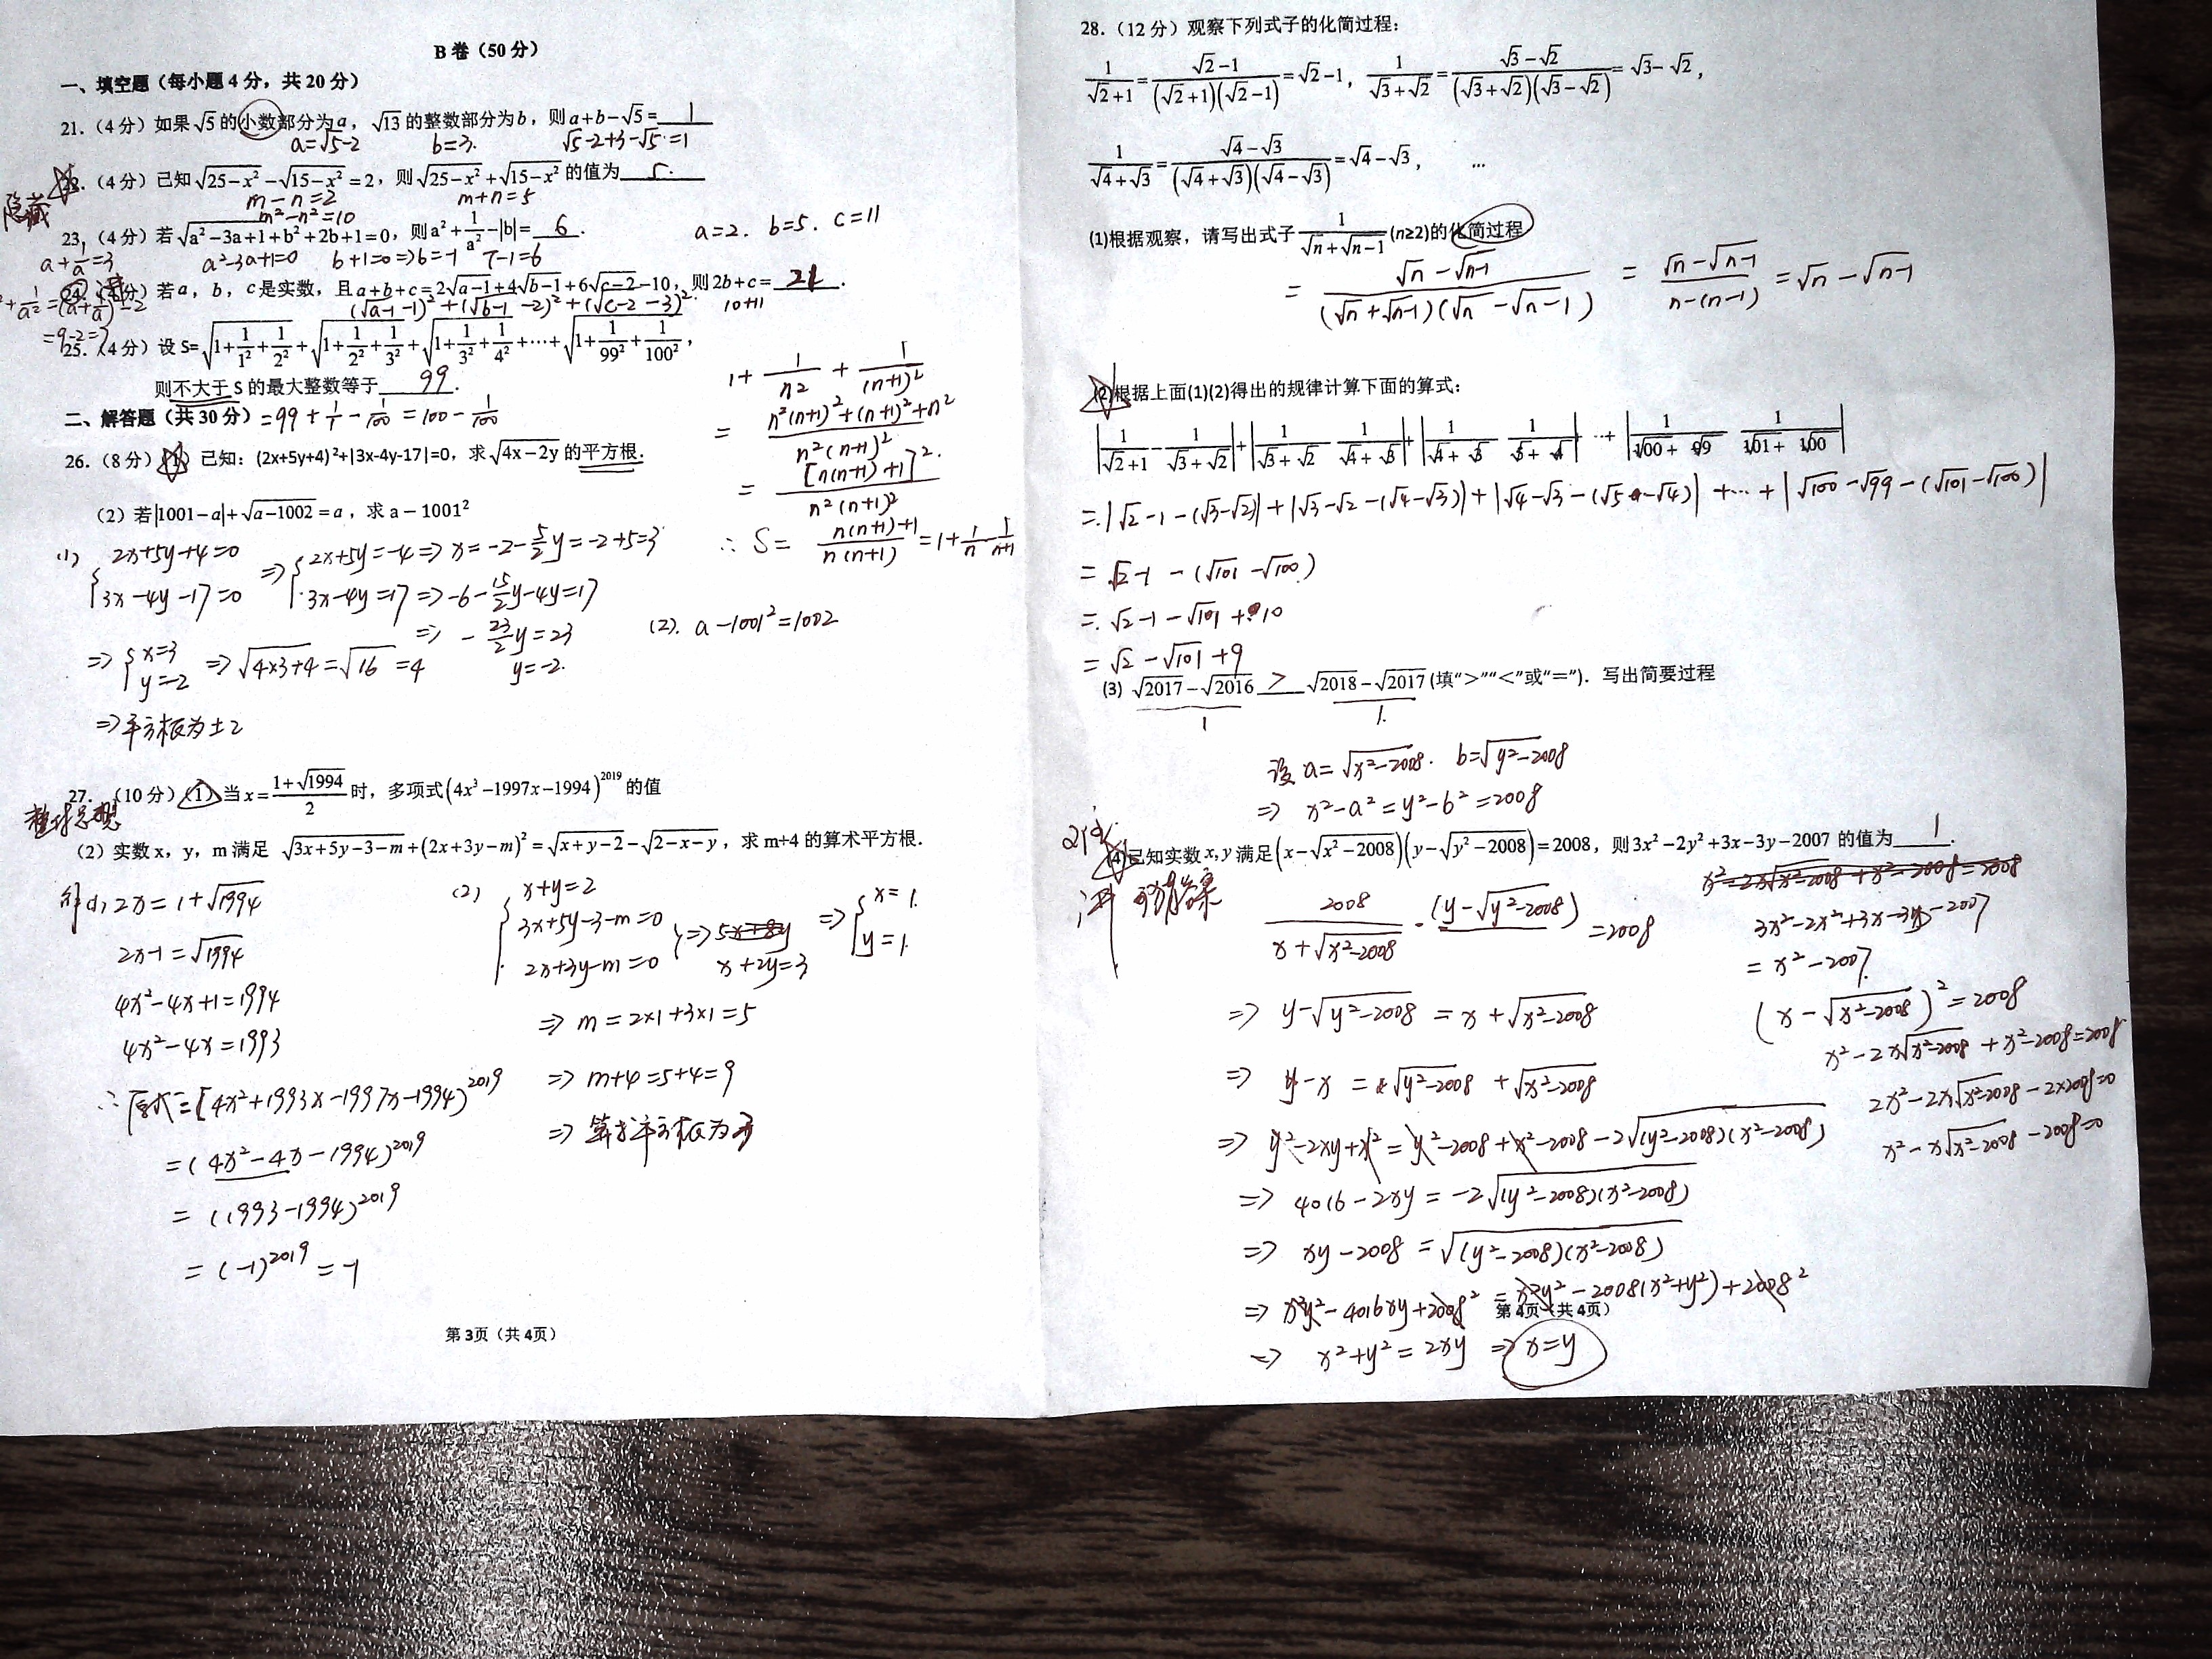 B 卷（50 分）
一、填空题（每小题 4 分，共 20 分）
21.（4 分）如果√5的小数部分为a，√13的整数部分为b，则a+b−√5=  1
a=√5-2   b=3.   √5-2+3-√5=1
22.（4 分）已知√(25−x²)−√(15−x²)=2，则√(25−x²)+√(15−x²)的值为  5.
隐藏
m-n=2   m+n=5
m²-n²=10
23.（4 分）若√(a²−3a+1+b²+2b+1)=0，则a²+1/a²−|b|=  6  .
a+1/a=3   a²-3a+1=0   b+1=0=>b=-1   7-1=6
a=2. b=5. c=11
24.（4分）若a，b，c是实数，且a+b+c=2√(a−1)+4√(b−1)+6√(c−2)−10，则2b+c=  21  .
a²+1/a²=(a+1/a)²-2   (√(a-1)-1)²+(√(b-1)-2)²+(√(c-2)-3)²   10+11
=9-2=7
25.（4分）设S=√(1+1/1²+1/2²)+√(1+1/2²+1/3²)+√(1+1/3²+1/4²)+···+√(1+1/99²+1/100²)，
则不大于 S 的最大整数等于  99  .
=99+1/1-1/100=100-1/100
1+1/n²+1/(n+1)²
=(n²(n+1)²+(n+1)²+n²)/(n²(n+1)²)
=[n(n+1)+1]²/(n²(n+1)²)
∴ S=(n(n+1)+1)/(n(n+1))=1+1/n-1/(n+1)
二、解答题（共 30 分）
26.（8 分）（1）已知：(2x+5y+4)²+|3x-4y-17|=0，求√(4x−2y)的平方根.
（2）若|1001−a|+√(a−1002)=a，求 a−1001²
(1) {2x+5y+4=0 => {2x+5y=-4=>x=-2-5/2y=-2+5=3
3x-4y-17=0   3x-4y=17=>-6-15/2y-4y=17
=>-23/2y=23
y=-2.
=>{x=3 y=-2 =>√(4×3+4)=√16=4
=>平方根为±2
(2). a-1001²=1002
27.（10 分）（1）当x=(1+√1994)/2时，多项式(4x³−1997x−1994)²⁰¹⁹的值
整体思想
（2）实数 x，y，m 满足 √(3x+5y−3−m)+(2x+3y−m)²=√(x+y−2)−√(2−x−y)，求 m+4 的算术平方根.
解(1) 2x=1+√1994
2x-1=√1994
4x²-4x+1=1994
4x²-4x=1993
∴原式=[4x²+1993x-1997x-1994]²⁰¹⁹
=(4x²-4x-1994)²⁰¹⁹
=(1993-1994)²⁰¹⁹
=(-1)²⁰¹⁹=-1
(2) {x+y=2
3x+5y-3-m=0
2x+3y-m=0 }=> x+2y=3 =>{x=1. y=1.
=>m=2×1+3×1=5
=>m+4=5+4=9
=>算术平方根为3
第 3页（共 4页）
28.（12 分）观察下列式子的化简过程：
1/(√2+1)=(√2−1)/((√2+1)(√2−1))=√2−1，1/(√3+√2)=(√3−√2)/((√3+√2)(√3−√2))=√3−√2，
1/(√4+√3)=(√4−√3)/((√4+√3)(√4−√3))=√4−√3，   …
(1)根据观察，请写出式子1/(√n+√(n−1))(n≥2)的化简过程
=(√n-√(n-1))/((√n+√(n-1))(√n-√(n-1)))=(√n-√(n-1))/(n-(n-1))=√n-√(n-1)
(2)根据上面(1)(2)得出的规律计算下面的算式：
|1/(√2+1)−1/(√3+√2)|+|1/(√3+√2) 1/(√4+√3)|+|1/(√4+√3) 1/(√5+√4)| ··+|1/(√100+√99) 1/(√101+√100)|
=|√2-1-(√3-√2)|+|√3-√2-(√4-√3)|+|√4-√3-(√5-√4)|+···+|√100-√99-(√101-√100)|
=√2-1-(√101-√100)
=√2-1-√101+10
=√2-√101+9
(3) √2017−√2016  >  √2018−√2017(填“>”“<”或“=”)．写出简要过程
1   1.
设a=√(x²-2008). b=√(y²-2008)
=>x²-a²=y²-b²=2008
(4)已知实数x,y满足(x−√(x²−2008))(y−√(y²−2008))=2008，则3x²−2y²+3x−3y−2007的值为  1  .
2008/(x+√(x²-2008))·(y-√(y²-2008))=2008
=>y-√(y²-2008)=x+√(x²-2008)
=>y-x=√(y²-2008)+√(x²-2008)
=>y²-2xy+x²=y²-2008+x²-2008-2√((y²-2008)(x²-2008))
=>4016-2xy=-2√((y²-2008)(x²-2008))
=>xy-2008=√((y²-2008)(x²-2008))
=>x²y²-4016xy+2008²=x²y²-2008(x²+y²)+2008²
=>x²+y²=2xy=>x=y
x²-2x√(x²-2008)+x²-2008=2008
3x²-2x²+3x-3y-2007
=x²-2007.
(x-√(x²-2008))²=2008
x²-2x√(x²-2008)+x²-2008=2008
2x²-2x√(x²-2008)-2×2008=0
x²-x√(x²-2008)-2008=0
第 4页（共 4页）